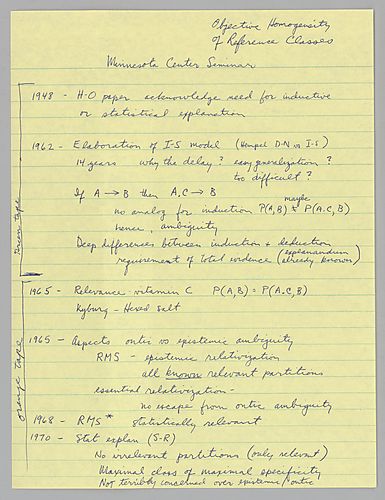 Objective Homogeneity
of Reference Classes
Minnesota Center Seminar
1948 - H-O paper acknowledge need for inductive
or statistical explanation
1962 - Elaboration of I-S model (Hempel D-N vs I-S)
14 years why the delay? easy generalization?
too difficult?
If A → B then A.C → B
maybe
no analog for induction P(A,B) ≠ P(A.C,B)
hence, ambiguity
Deep differences between induction & deduction
requirement of total evidence (explanandum
already known)
1965 - Relevance vitamin C P(A,B) = P(A.C,B)
Kyburg - Hexed salt
1965 - Aspects ontic vs epistemic ambiguity
RMS - epistemic relativization
all known relevant partitions
essential relativization -
no escape from ontic ambiguity
1968 - RMS* Statistically relevant
1970 - Stat explan (S-R)
No irrelevant partitions (only relevant)
Maximal class of maximal specificity
Not terribly concerned over epistemic/ontic
orange tape